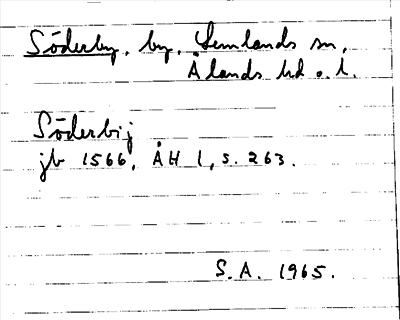 Söderby, by, Lemlands sn,
Ålands hd o. l.
Söderbij
jb 1566, ÅH 1, s. 263.
S.A. 1965.